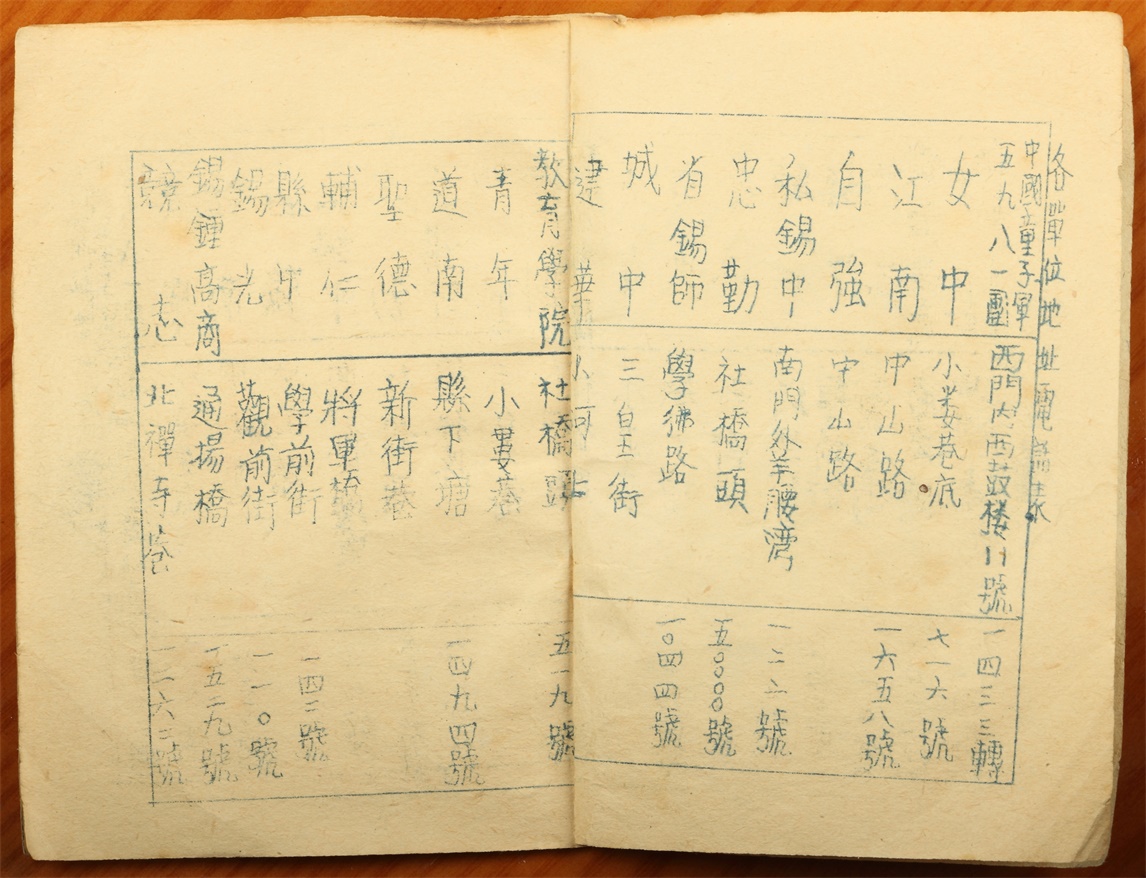 各單位地址電話表
中國童子軍五九八一團 西門內西鼓楼11號 一四三三轉
女中 小婁巷底 七一六號
江南 中山路 一六五八號
自強 中山路
私錫中 南門外羊腰湾 一二六號
忠勤 社橋頭 五〇〇〇號
省錫師 學佛路 一〇四四號
城中 三皇街
建華 小河上
教育學院 社橋頭 五一九號
青年 小婁巷
道南 縣下塘 一四九四號
聖德 新街巷
輔仁 將軍橋
縣中 學前街 一四二號
錫光 觀前街 一一一〇號
錫鍾高商 通揚橋 一五二九號
競志 北禪寺巷 一一六二號